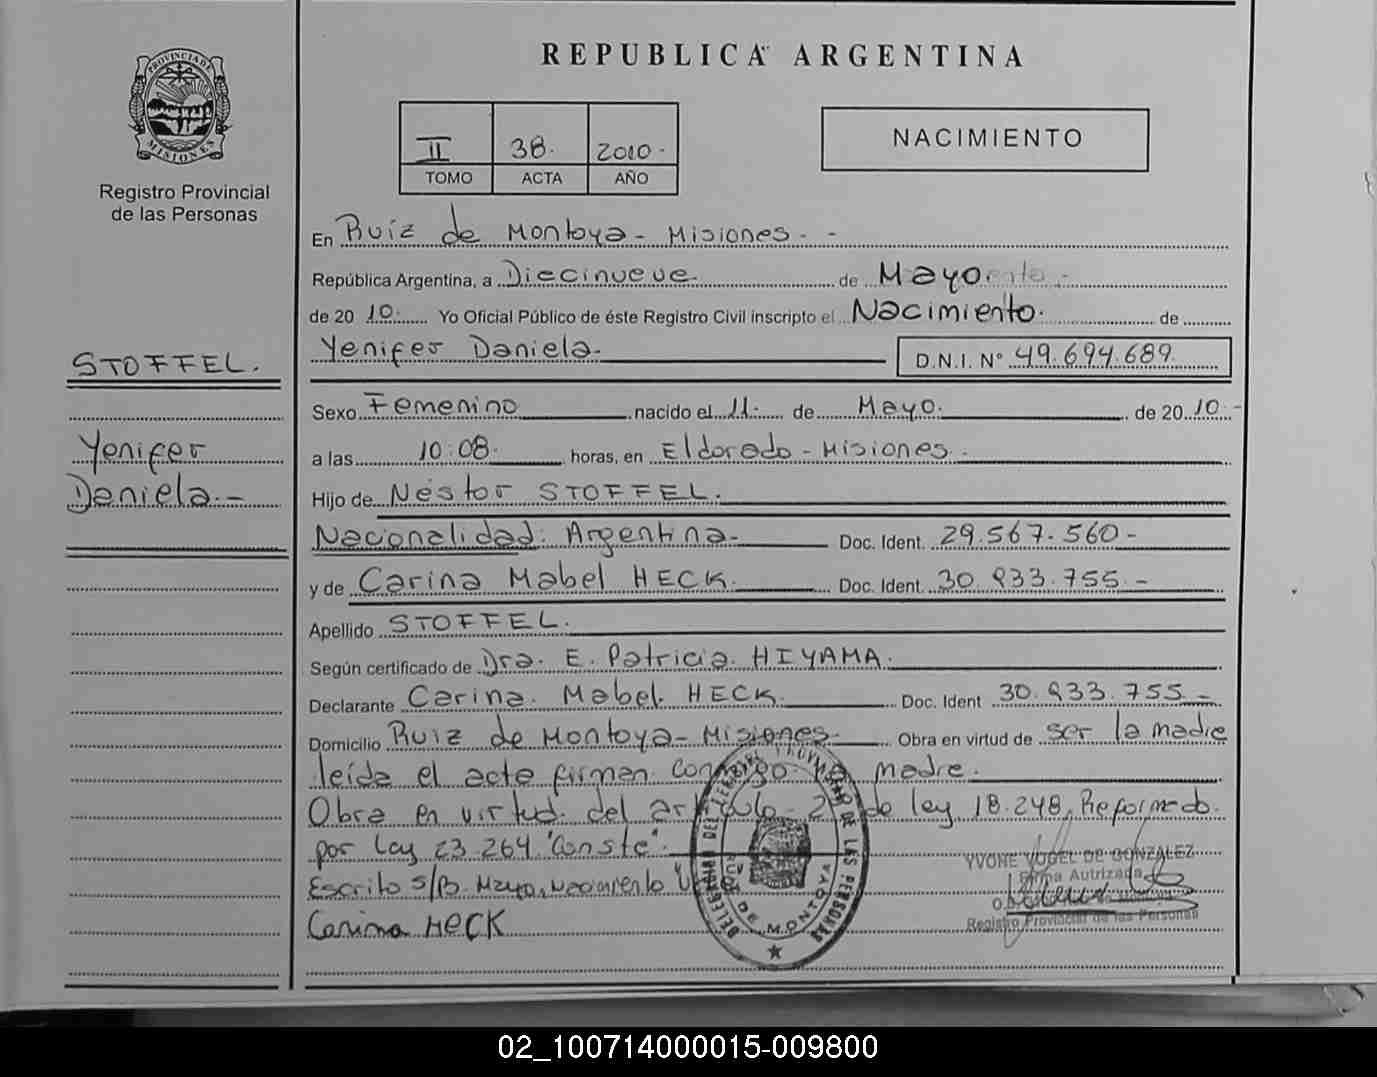 REPUBLICA ARGENTINA
PROVINCIA DE MISIONES
Registro Provincial
de las Personas
II 38. 2010.-
TOMO ACTA AÑO
NACIMIENTO
En Ruiz de Montoya - Misiones. -
República Argentina, a Diecinueve. de Mayo
de 20 10. Yo Oficial Público de éste Registro Civil inscripto el Nacimiento. de
STOFFEL.
Yenifer Daniela.
D.N.I. N° 49.694.689.
Sexo Femenino nacido el 11. de Mayo. de 20 10.-
Yenifer
Daniela.-
a las 10:08. horas, en Eldorado - Misiones.
Hijo de Néstor STOFFEL.
Nacionalidad: Argentina. Doc. Ident. 29.567.560-
y de Carina Mabel HECK. Doc. Ident. 30.833.755.-
Apellido STOFFEL.
Según certificado de Dra. E. Patricia HIYAMA.
Declarante Carina Mabel HECK. Doc. Ident 30.833.755.-
Domicilio Ruiz de Montoya - Misiones. Obra en virtud de ser la madre
leída el acta firman conmigo madre.
Obra en virtud del artículo 2 de ley 18.248, Reformado.
por ley 23.264 "Conste".
Escrito s/B. Mayo, Nacimiento
Carina HECK
YVONE VOGEL DE GONZALEZ
Firma Autrizada
Registro Provincial de las Personas
RUIZ DE MONTOYA
02_100714000015-009800